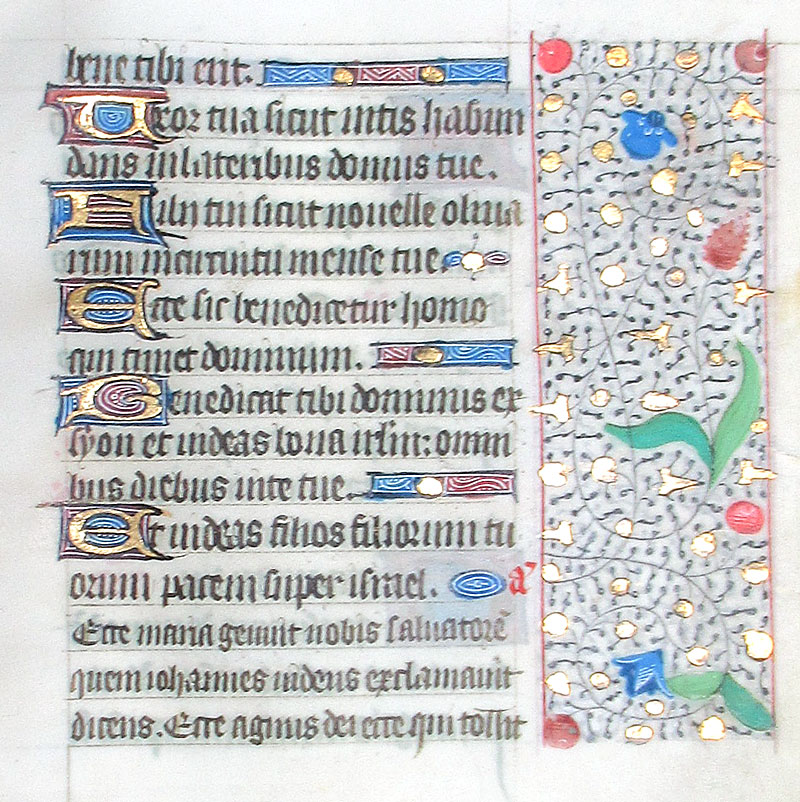 bene tibi erit.
Uxor tua sicut uitis habun
dans in lateribus domus tue.
Filii tui sicut nouelle oliua
rum in circuitu mense tue.
Ecce sic benedicetur homo
qui timet dominum.
Benedicat tibi dominus ex
syon et uideas bona irlm: omni
bus diebus uite tue.
Et uideas filios filiorum tu
orum pacem super israel. a'
Ecce maria genuit nobis saluatorē
quem iohannes uidens exclamauit
dicens. Ecce agnus dei ecce qui tollit